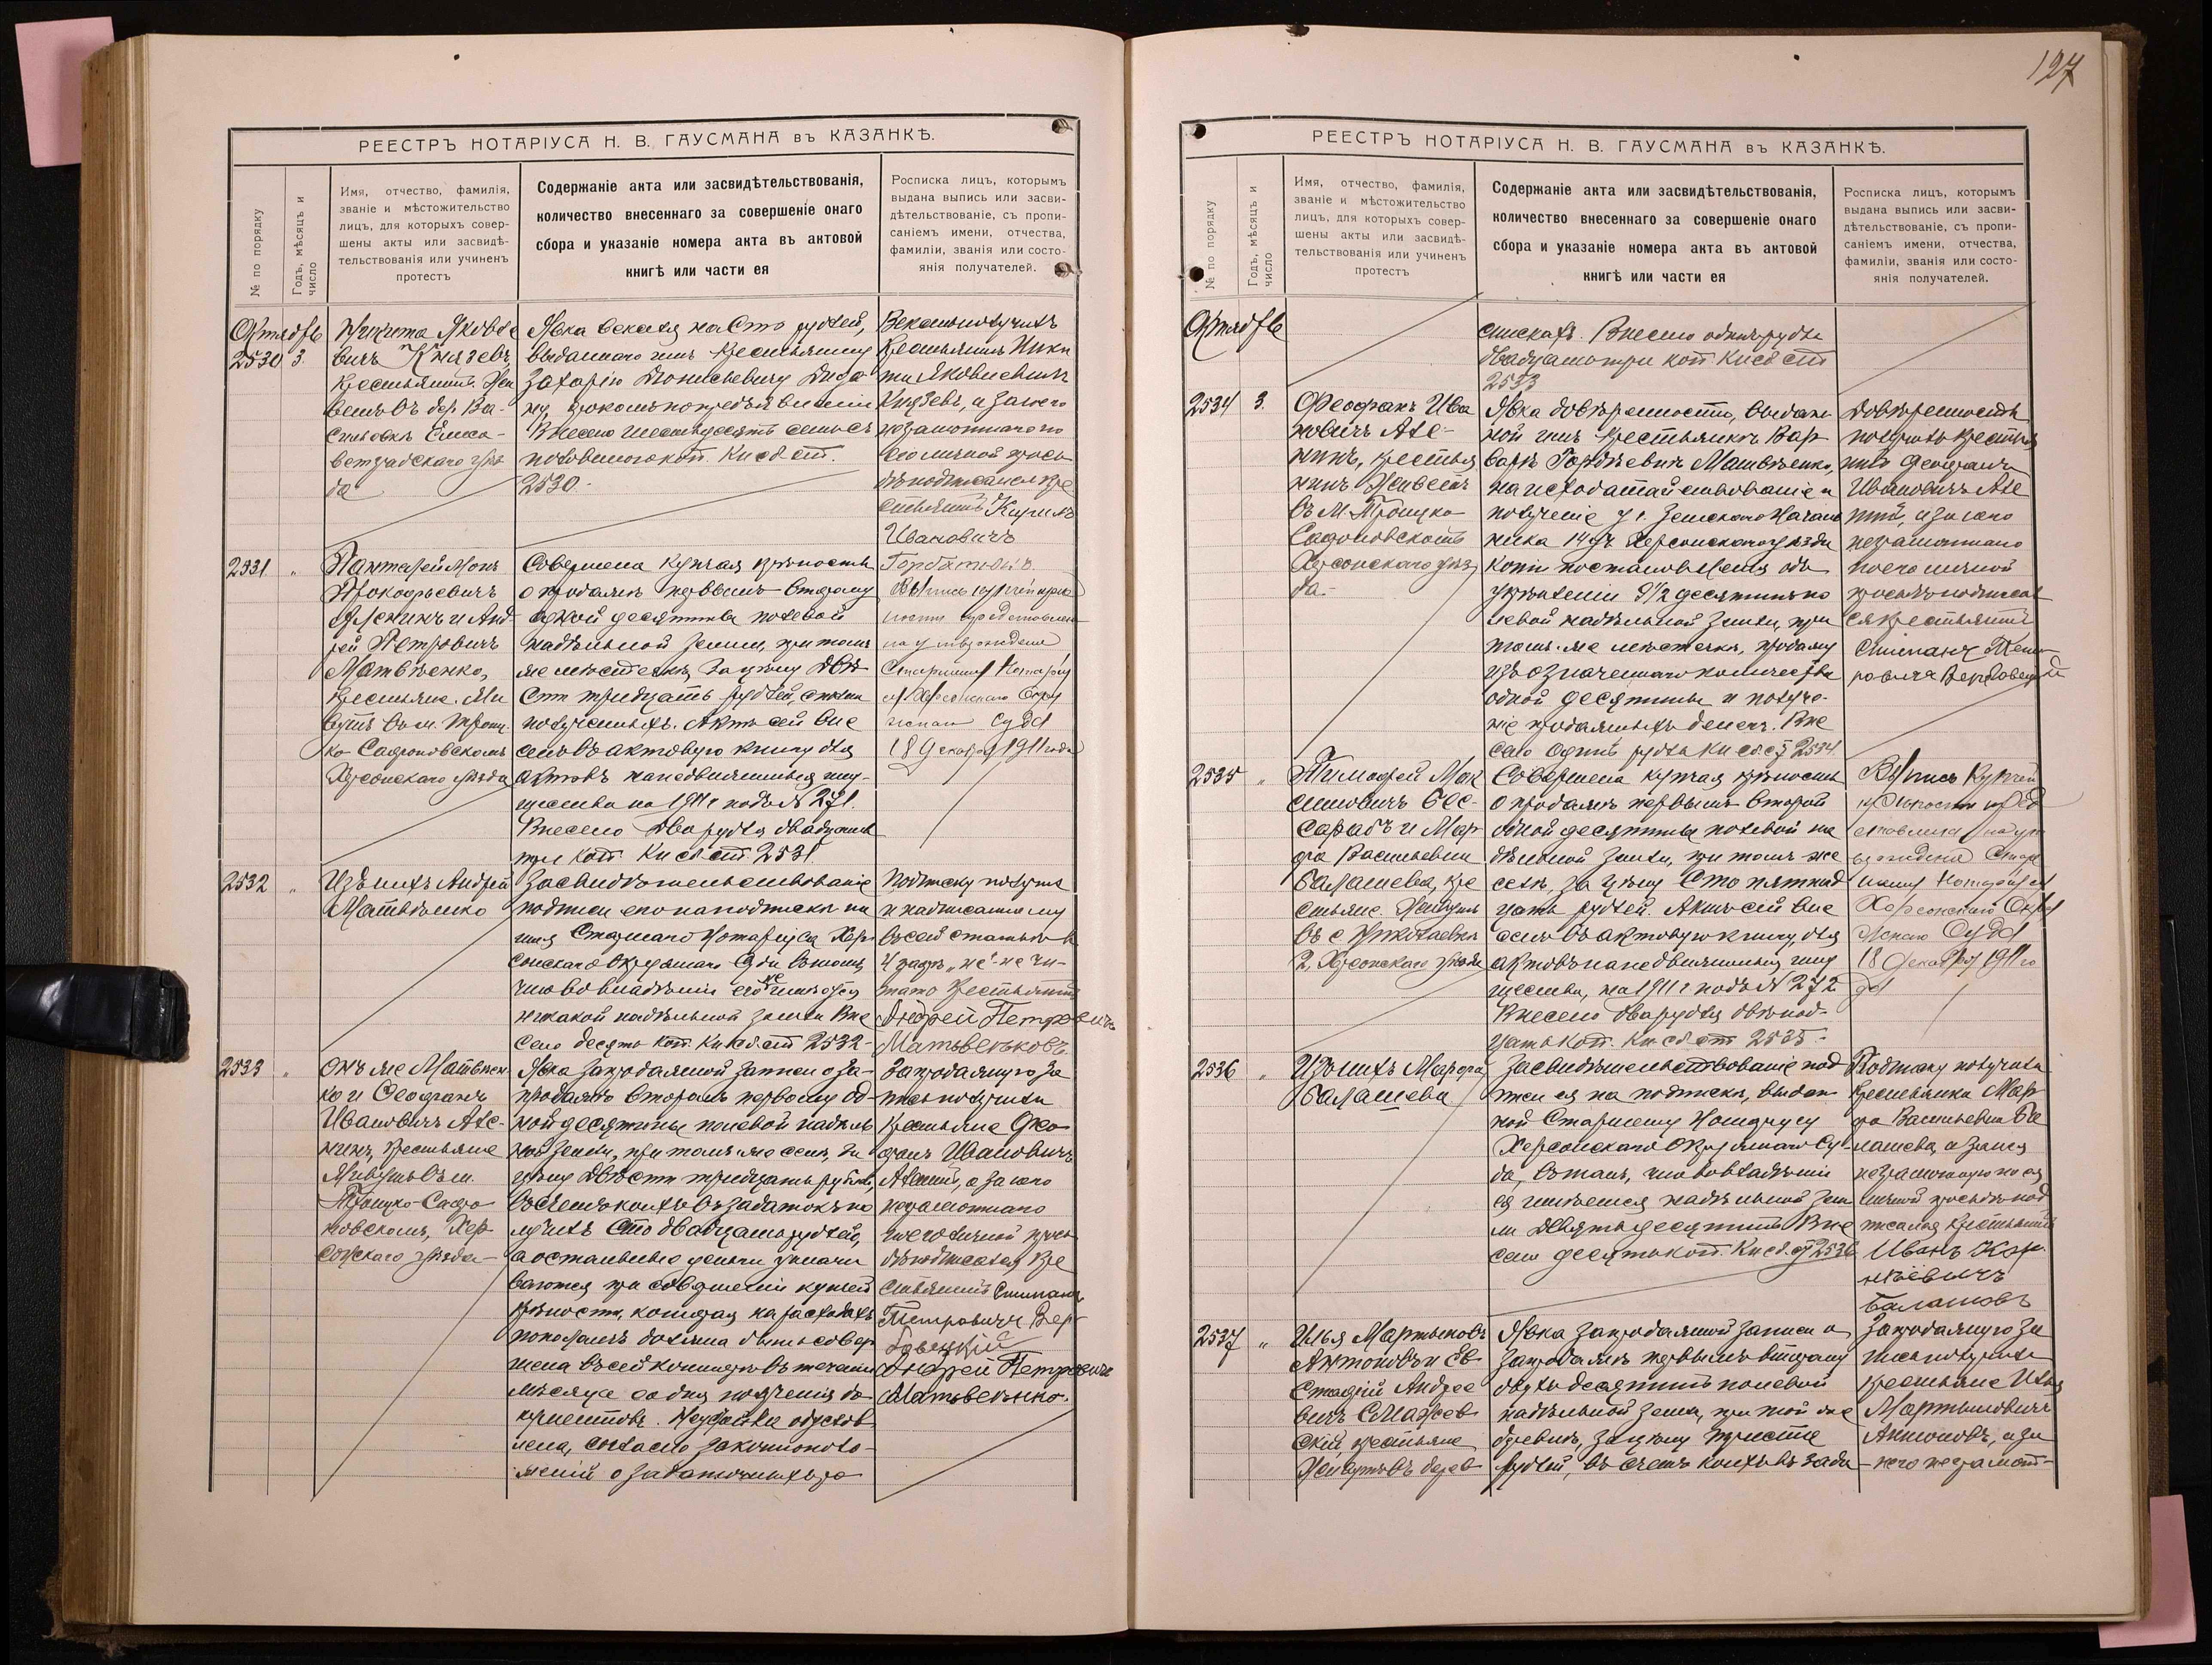 РЕЕСТРЪ НОТАРІУСА Н. В. ГАУСМАНА въ КАЗАНКѢ.
№ по порядку
Годъ, мѣсяцъ и
число
Имя, отчество, фамилія,
званіе и мѣстожительство
лицъ, для которыхъ совер-
шены акты или засвидѣ-
тельствованія или учиненъ
протестъ
Содержаніе акта или засвидѣтельствованія,
количество внесеннаго за совершеніе онаго
сбора и указаніе номера акта въ актовой
книгѣ или части ея
Росписка лицъ, которымъ
выдана выпись или засви-
дѣтельствованіе, съ пропи-
саніемъ имени, отчества,
фамиліи, званія или состо-
янія получателей.
Октябрь
2530 3.
Никита Яковле
вичъ Князевъ,
крестьянинъ. Жи
Ва-
Елиса-
ветградскаго уѣз
да
Явка векселя на Сто рублей,
выданнаго имъ крестьянину
Захарію Діонисьевичу
Внесено шестьдесятъ семь съ
половиною коп. Кн сб. ст.
2530.
Вексель получилъ
крестьянинъ Ники
та Яковлевичъ
Князевъ, а за него
неграмотнаго по
его личной прось
бѣ подписался кре
стьянинъ Кирилъ
Ивановичъ
Горбатюкъ.
2531 "
Пантелеймонъ
Прокофьевичъ
Аленинъ и Анд-
рей Петровичъ
Матвѣенко,
крестьяне. Жи
вутъ въ м. Троиц-
ко Сафоновскомъ
Херсонскаго уѣзда
Совершена купчая крѣпость
о продажѣ первымъ второму
одной десятины полевой
надѣльной земли, при томъ
же мѣстечкѣ, за цѣну двѣ
сти тридцать рублей, сполна
полученныхъ. Актъ сей вне
сенъ въ актовую книгу для
актовъ на недвижимыя иму-
щества на 1911 г подъ № 271.
Внесено два рубля двадцать
три коп. Кн сб. ст. 2531.
Выпись купчей крѣ
пости представлена
на утвержденіе
Старшему Нотаріу
су Херсонскаго Окру
жнаго Суда
18 декабря 1911 года
2532 "
Изъ нихъ Андрей
Матвѣенко
Засвидѣтельствованіе
подписи его на подпискѣ на
имя Старшаго Нотаріуса Хер-
сонскаго Окружнаго Суда въ томъ,
что во владѣніи его не имѣется
никакой надѣльной земли Вне
сено десять коп. Кн сб. ст 2532-
Подписку получилъ
и надписанному
въ сей статьѣ въ
4 графѣ "не" - не чи-
тать крестьянинъ
Андрей Петровичъ
Матьвеѣковъ.
2533 "
Онъ же Матвѣен-
ко и Феофанъ
Ивановичъ Але-
нинъ, крестьяне
Живутъ въ м.
Троицко-Сафо
новскомъ, Хер-
сонскаго уѣзда-
Явка запродажной записи о за-
продажѣ вторымъ первому од-
ной десятины полевой надѣль
ной земли, при томъ же селѣ, за
цѣну двѣсти тридцать рублей,
въ счетъ коихъ въ задатокъ по
лучилъ сто двадцать рублей,
а остальныя деньги уплачи
ваются при совершеніи купчей
крѣпости, которая на расходахъ
пополамъ должна быть совер
шена въ сей конторѣ въ теченіи
мѣсяца со дня полученія до-
кументовъ. Неустойка обуслов
лена, согласно законополо-
женій о задаточныхъ ро
Запродажную за
пись получили
крестьяне Фео
фанъ Ивановичъ
Аленинъ, а за него
неграмотнаго
по его личной прось
бѣ подписался кре
стьянинъ Стипанъ
Петровичъ Вер-
бовецкій
Андрей Петровичъ
Матьвеѣнко.
127
РЕЕСТРЪ НОТАРІУСА Н. В. ГАУСМАНА въ КАЗАНКѢ.
№ по порядку
Годъ, мѣсяцъ и
число
Имя, отчество, фамилія,
званіе и мѣстожительство
лицъ, для которыхъ совер-
шены акты или засвидѣ-
тельствованія или учиненъ
протестъ
Содержаніе акта или засвидѣтельствованія,
количество внесеннаго за совершеніе онаго
сбора и указаніе номера акта въ актовой
книгѣ или части ея
Росписка лицъ, которымъ
выдана выпись или засви-
дѣтельствованіе, съ пропи-
саніемъ имени, отчества,
фамиліи, званія или состо-
янія получателей.
Октябрь
спискахъ. Внесено одинъ рубль
двадцать три коп. Кн сб ст
2533
2534 3.
Феофанъ Ива
новичъ Але-
нинъ, крестья
нинъ. Живетъ
въ м. Троицко
Сафоновскомъ
Херсонскаго уѣз
да.-
Явка довѣренности, выдан-
ной имъ крестьянкѣ Вар
варѣ Гордѣевнѣ Матвѣенко,
на исходатайствованіе и
полученіе у г. Земскаго Началь
ника 14 уч. Херсонскаго уѣзда
копіи постановленія объ
укрѣпленіи 9 1/2 десятинъ по
левой надѣльной земли, при
томъ же мѣстечкѣ, продажу
изъ означеннаго количества
одной десятины и получе-
ніе продажныхъ денегъ. Вне
сено одинъ рубль Кн сб. ст 2534
Довѣренность
получилъ крестья
нинъ Феофанъ
Ивановичъ Але
нинъ, а за него
неграмотнаго
по его личной
просьбѣ подписал
ся крестьянинъ
Стипанъ Пет
ровичъ Вербовецкій
2535 "
Тимофей Мак
симовичъ Бес-
сарабъ и Мар-
фа Васильевна
Балашева, кре
стьяне. Живутъ
въ с Николаевкѣ
2, Херсонскаго уѣзда
Совершена купчая крѣпость
о продажѣ первымъ второй
одной десятины полевой на
дѣльной земли, при томъ же
селѣ, за цѣну Сто пятнад
цать рублей. Актъ сей вне
сенъ въ актовую книгу, для
актовъ на недвижимыя иму
щества, на 1911 г подъ № 272
Внесено два рубля двѣнад-
цать коп. Кн сб. ст 2535.-
Выпись Купчей
крѣпости пред
ставлена на ут
вержденіе Стар
шему Нотаріусу
Херсонскаго Окру
жнаго Суда
18 декабря 1911 го
да
2536 "
Изъ нихъ Марфа
Балашева
Засвидѣтельствованіе под
писи ея на подпискѣ, выдан
ной Старшему Нотаріусу
Херсонскаго Окружнаго Су-
да, въ томъ, что во владѣніи
ея имѣется надѣльной зем
ли девять десятинъ Вне
сено десять коп. Кн сб. ст 2536
Подписку получила
крестьянка Мар
фа Васильевна Ба
лашева, а за нея
неграмотную по ея
личной просьбѣ под
писался крестьянинъ
Иванъ
Балашовъ
2537 "
Илья Мартыновъ
Антоновъ и Ев-
стафій Андрее
вичъ Смажев
скій, крестьяне
Живутъ въ дерев
Явка запродажной записи о
запродажѣ первымъ второму
двухъ десятинъ полевой
надѣльной земли, при той же
деревнѣ, за цѣну триста
рублей, въ счетъ коихъ въ зада
Запродажную за
пись получили
крестьяне Илья
Мартыновичъ
Антоновъ, а за
него неграмот-